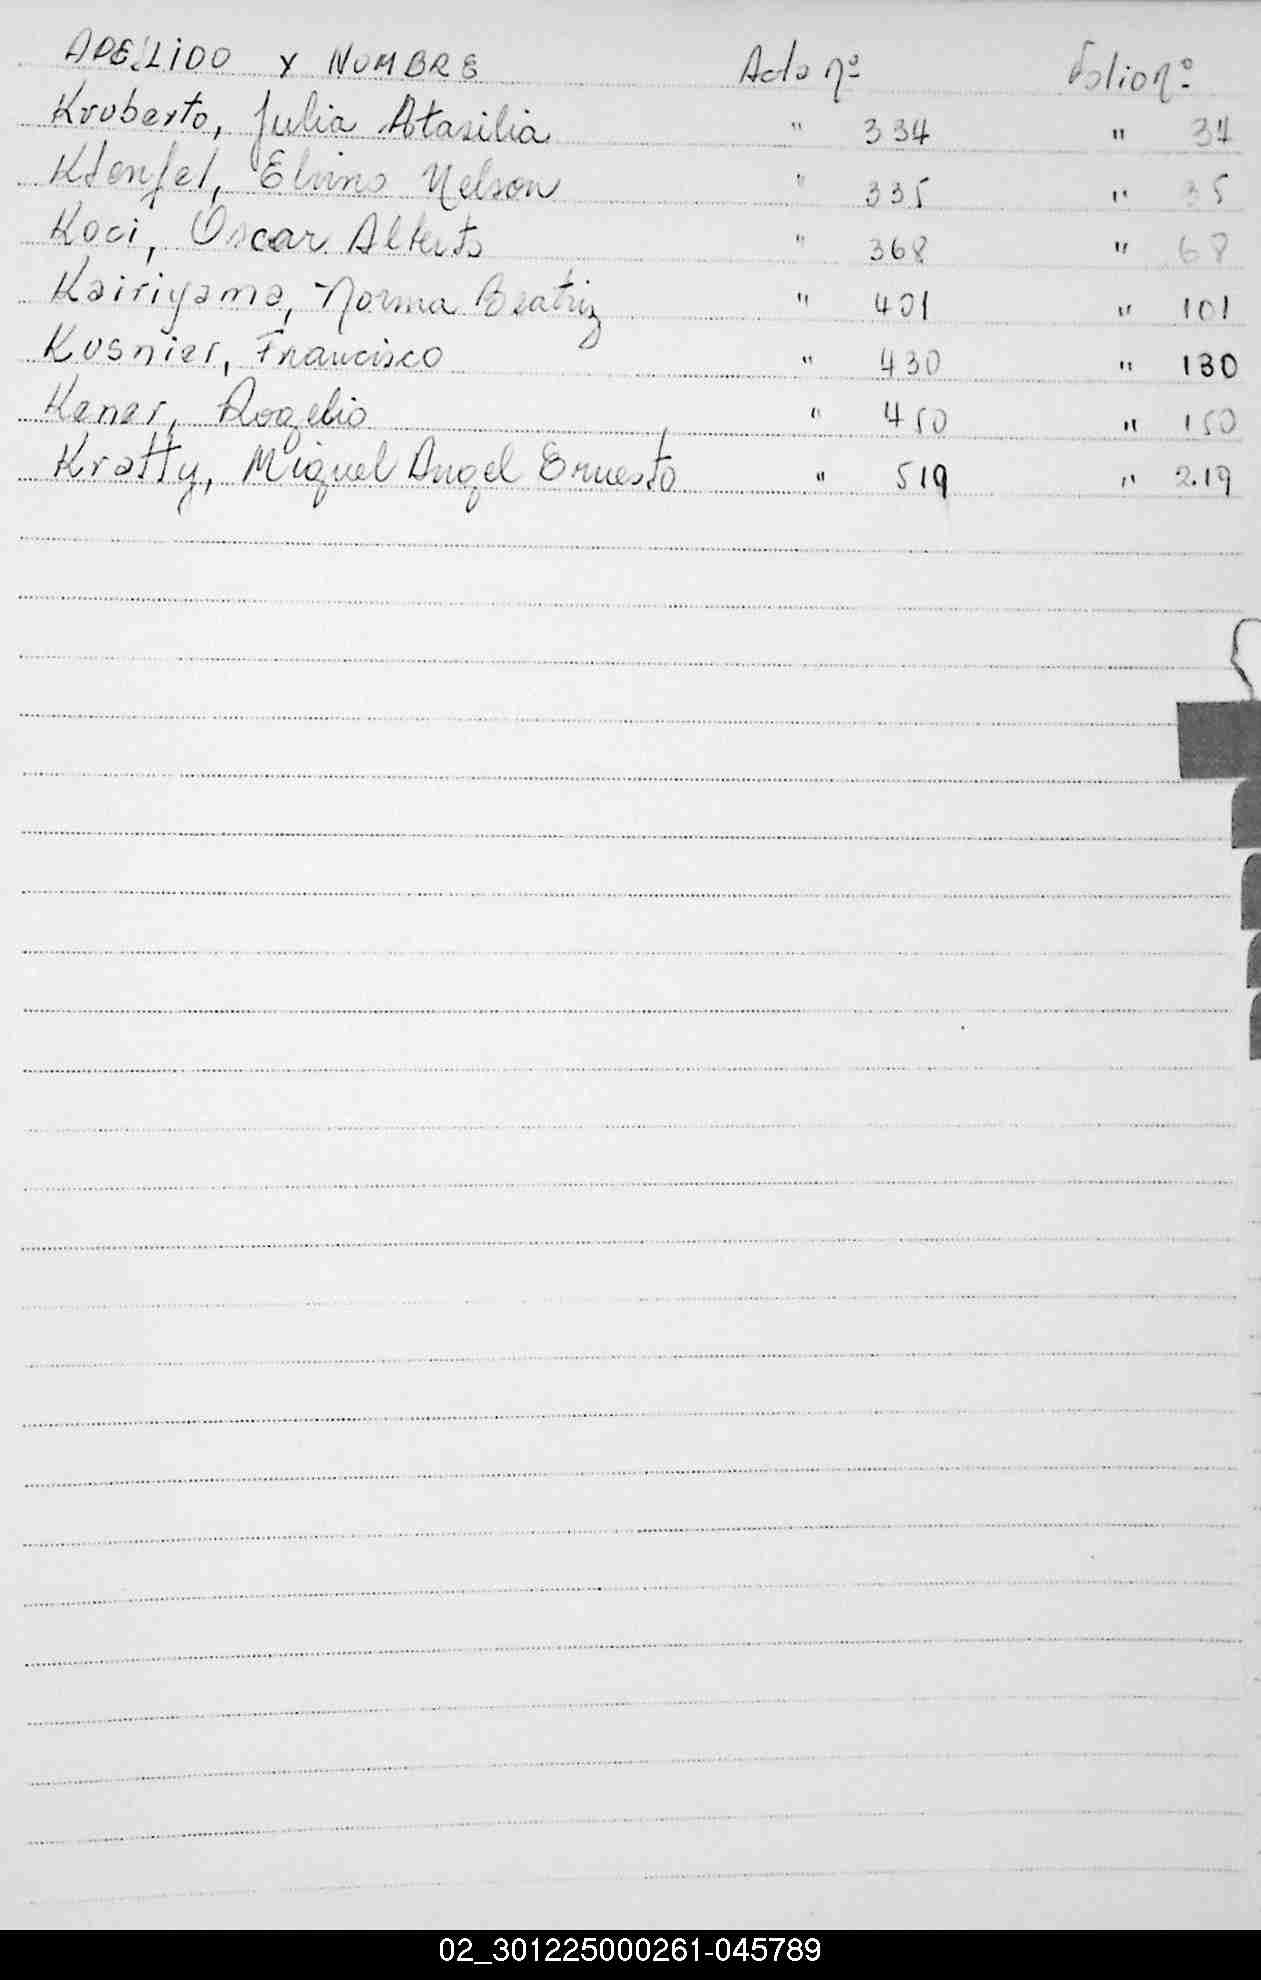 APELLIDO Y NOMBRE Acta nº Folio nº
Kruberto, Julia Atasilia " 334 " 34
Klenfel, Elvino Nelson " 335 " 35
Koci, Oscar Alberto " 368 " 68
Kairiyama, Norma Beatriz " 401 " 101
Kusnier, Francisco " 430 " 130
Kener, Rogelio " 450 " 150
Kratty, Miguel Angel Ernesto " 519 " 219
02_301225000261-045789